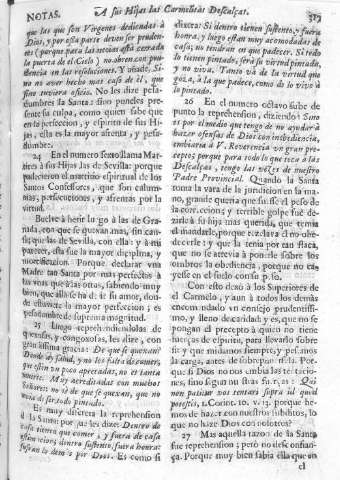 NOTAS.
A sus Hijas las Carmelitas Descalças.
que las que son Virgenes dedicadas à
Dios, y por esta parte deven ser pruden-
tes (porque para las necias està cerrada
la puerta de el Cielo) no obren con pru-
dencia en las resoluciones. Y añade. Si-
no ay aver hecho mas caso de èl, que
sino tuviera oficio. No les dize pesa-
dumbres la Santa: sino poneles presen-
te su culpa, como quien sabe que
en la perfeccion, y espiritu de sus Hi-
jas, esta es la mayor afrenta, y pesa-
dumbre.
24 En el numero sexto llama Mar-
tires à sus Hijas las de Sevilla: porque
padecieron el martirio espiritual de los
Santos Confessores, que son calum-
nias, persecuciones, y afrentas por la
virtud.
Buelve à herir luego à las de Gra-
nada, con que se quexan mas, sin cau-
sa, que las de Sevilla, con ella: y à mi
parecer, esta fue la mayor diciplina, y
mortificacion. Porque declarar vna
Madre tan Santa por mas perfectos à
las vnas que à las otras, sabiendo muy
bien, que alli se ha de ir su amor, don-
de estuviere la mayor perfeccion; es
pesadumbre de suprema magnitud.
25 Luego reprehendiendolas de
quexosas, y congoxosas, les dize, con
grandissima gracia: De què se quexan?
Donde ay salud, y no les falta de comer,
que estèn vn poco apretadas, no es tanta
muerte. Muy acreditadas con muchos
Señores: no sè de què se quexan, que no
avia de ser todo pintado.
Es muy discreta la reprehension
de la Santa: pues fue les dize: Dentro de
casa tienen que comer, y fuera de casa
estèn dentro sustento, fuera honra:
Es como si
319
dixera: Si dentro tienen sustento, y fuera
honra, y luego estàn muy acomodadas de
casa; no tendràn en què padecer. Si todo
lo tienen pintado, serà su virtud pintada,
y no viva. Tanto và de la virtud que
goza, à la que padece, como de lo vivo à
lo pintado.
26 En el numero octavo sube de
punto la reprehension, diziendo: Sino
es por el miedo que tengo de no ayudar à
hazer ofensas de Dios con inobediencia,
embiaria à V. Reverencia vn gran pre-
cepto; porque para todo lo que toca à las
Descalças, tengo las vezes de nuestro
Padre Provincial. Quando la Santa
toma la vara de la jurisdicion en la ma-
no, grande queria que fuesse el peso de
la correccion; y terrible golpe fuè de-
zirle à su hija mas querida, que temia
el mandarle, porque recelava el no obe-
decerle: y que la tenia por tan flaca,
que no se atrevia à ponerle sobre los
ombros la obediencia, porque no ca-
yesse en el suelo con su peso.
Con esto dexò à los Superiores de
el Carmelo, y aun à todos los demàs
encomendado vn consejo prudentissi-
mo, y lleno de caridad; y es, que no se
pongan el precepto à quien no tiene
fuerças de espiritu, para llevarlo sobre
si: y que midamos siempre, y pesemos
la carga, antes de sobreponerla. Por-
que si Dios no nos embia las tentacio-
nes, sino segun nuestras fuerças: Qui
non patitur nos tentari supra id quod
possumus, 1. Corint. 10. v. 13. porque he-
mos de hazer con nuestros subditos, lo
que no haze Dios con nosotros?
27 Mas aquella razon de la Santa
fue reprehension; pero no desconfian-
ça. Porque muy bien sabia ella que en
el